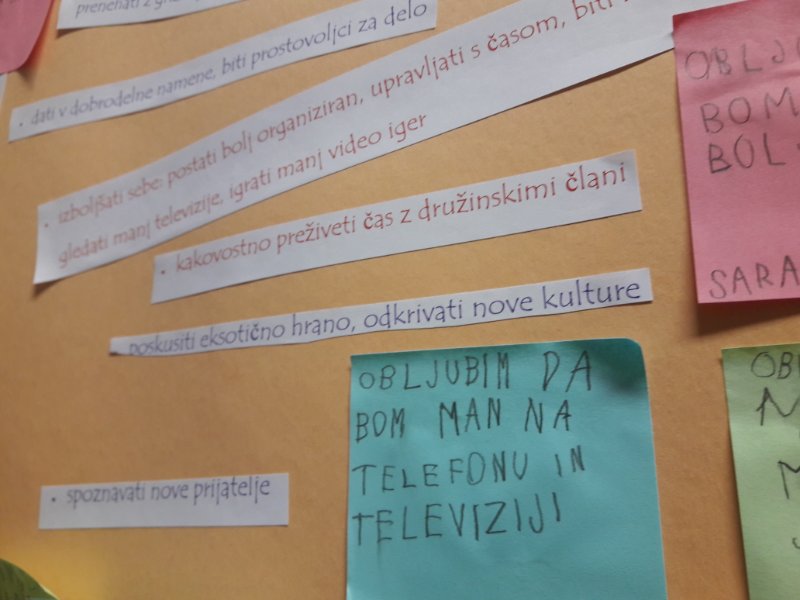 prenehati z
• dati v dobrodelne namene, biti prostovoljci za delo
• izboljšati sebe: postati bolj organiziran, upravljati s časom, biti
gledati manj televizije, igrati manj video iger
• kakovostno preživeti čas z družinskimi člani
poskusiti eksotično hrano, odkrivati nove kulture
• spoznavati nove prijatelje
OBLJUBIM DA
BOM MAN NA
TELEFONU IN
TELEVIZIJI
BOM
SARA